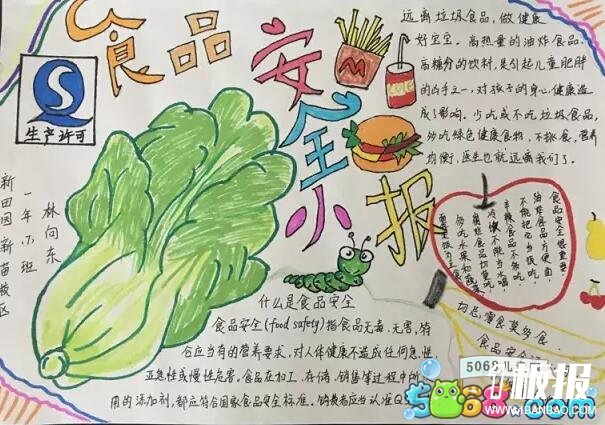 食品安全小报
生产许可
远离垃圾食品，做健康
好宝宝。高热量的油炸食品，
高糖分的饮料，是引起儿童肥胖
的凶手之一，对孩子的身心健康造
成了影响。少吃或不吃垃圾食品，
多吃绿色健康食物，不挑食，营养
均衡，医生也就远离我们了。
新田园新苗校区
一年班
林向东
食品安全很重要，
油炸食品方便面，
不能把它当饭吃，
辛辣食品不多吃，
不能当水喝，
食品切莫吃，
多吃水果和蔬菜，
切忌，零食莫多食.
食品安全
什么是食品安全
食品安全(food safety)指食品无毒、无害,符
合应当有的营养要求，对人体健康不造成任何急性、
亚急性或慢性危害。食品在加工、存储、销售等过程中所
用的添加剂，都应符合国家食品安全标准。销费者应当认准QS
5068儿
5068.com
极报
WWW.1BANBAO.COM